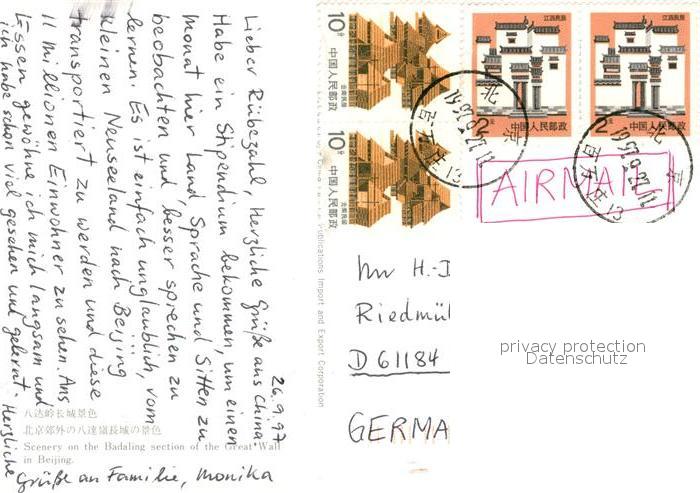 Lieber Rübezahl, Herzliche Grüße aus China
26.9.97
Habe ein Stipendium bekommen, um einen
Monat hier Land Sprache und Sitten zu
beobachten und besser sprechen zu
lernen. Es ist einfach unglaublich, vom
kleinen Neuseeland nach Beijing
transportiert zu werden und diese
11 Millionen Einwohner zu sehen. Ans
Essen gewöhne ich mich langsam und
ich habe schon viel gesehen und gelernt. Herzliche
Grüße an Familie, Monika
八达岭长城景色
北京郊外の八達嶺長城の景色
Scenery on the Badaling section of the Great Wall
in Beijing.
Publications Import and Export Corporation
10分
中国人民邮政
云南民居
10分
中国人民邮政
云南民居
江西民居
2元
中国人民邮政
江西民居
2元
中国人民邮政
北京
北京
AIRMAIL
H.-J
Riedmül
D 61184
GERMA
privacy protection
Datenschutz